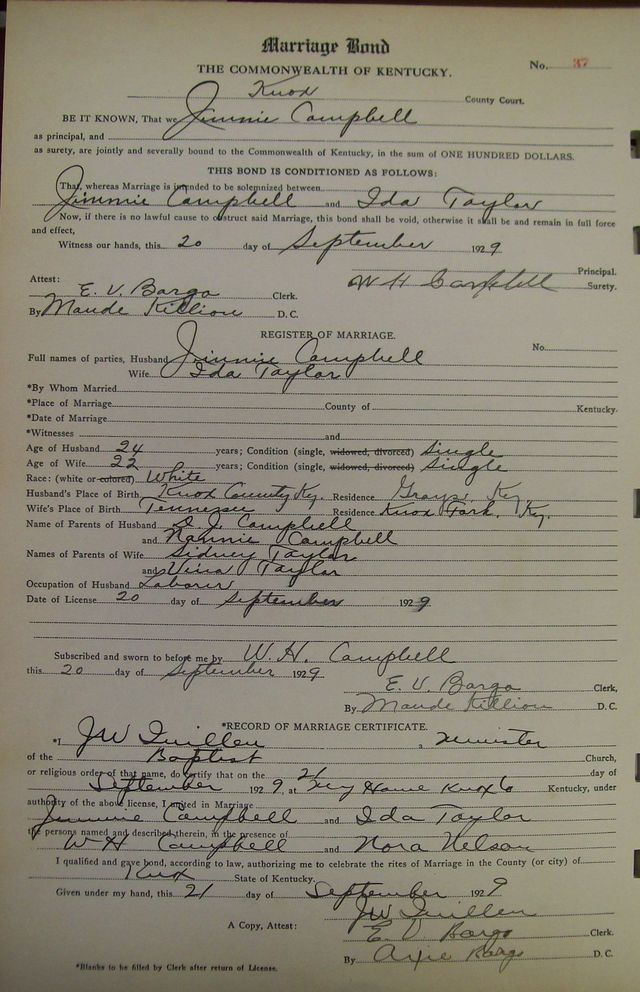 Marriage Bond
THE COMMONWEALTH OF KENTUCKY.
No. 37
Knox County Court.
BE IT KNOWN, That we Jimmie Campbell
as principal, and
as surety, are jointly and severally bound to the Commonwealth of Kentucky, in the sum of ONE HUNDRED DOLLARS.
THIS BOND IS CONDITIONED AS FOLLOWS:
That, whereas Marriage is intended to be solemnized between
Jimmie Campbell and Ida Taylor
Now, if there is no lawful cause to obstruct said Marriage, this bond shall be void, otherwise it shall be and remain in full force
and effect,
Witness our hands, this 20 day of September 1929
Principal.
Attest: W H Campbell Surety.
E. V. Bargo Clerk.
By Maude Killion D. C.
REGISTER OF MARRIAGE.
No.
Full names of parties, Husband Jimmie Campbell
Wife Ida Taylor
*By Whom Married
*Place of Marriage County of Kentucky.
*Date of Marriage
*Witnesses and
Age of Husband 24 years; Condition (single, widowed, divorced) Single
Age of Wife 22 years; Condition (single, widowed, divorced) Single
Race: (white or colored) White
Husband's Place of Birth Knox County Ky. Residence Grays, Ky
Wife's Place of Birth Tennessee Residence Knox Fork, Ky.
Name of Parents of Husband D. J. Campbell
and Nannie Campbell
Names of Parents of Wife Sidney Taylor
and Vina Taylor
Occupation of Husband Laborer
Date of License 20 day of September 1929
Subscribed and sworn to before me by W. H. Campbell
this 20 day of September 1929
E. V. Bargo Clerk,
By Maude Killion D. C.
*RECORD OF MARRIAGE CERTIFICATE.
*I JW Quillen, minister
of the Baptist Church,
or religious order of that name, do certify that on the 21 day of
September 1929, at my Home Knox Co Kentucky, under
authority of the above license, I united in Marriage
Jimmie Campbell and Ida Taylor
the persons named and described therein, in the presence of
W H Campbell and Nora Nelson
I qualified and gave bond, according to law, authorizing me to celebrate the rites of Marriage in the County (or city) of
Knox State of Kentucky.
Given under my hand, this 21 day of September 1929
JW Quillen
A Copy, Attest: E V Bargo Clerk.
By Bargo D. C.
*Blanks to be filled by Clerk after return of License.